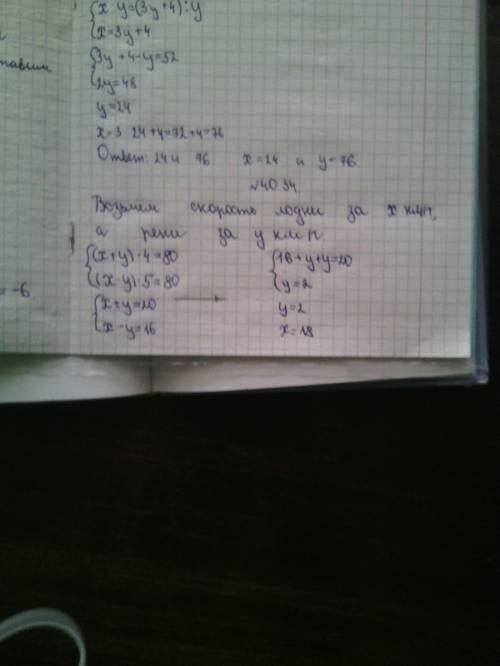 x y=(3y+4):y
x=3y+4
3y+4-y=52
2y=48
y=24
x=3 24+4=72+4=76
Ответ: 24 и 76. x=24 и y=76.
№4034
Возьмем скорость лодки за x км/ч,
а реки за y км/ч.
(x+y)·4=80
(x-y)·5=80
x+y=20
x-y=16
16+y+y=20
y=2
y=2
x=18
=-6